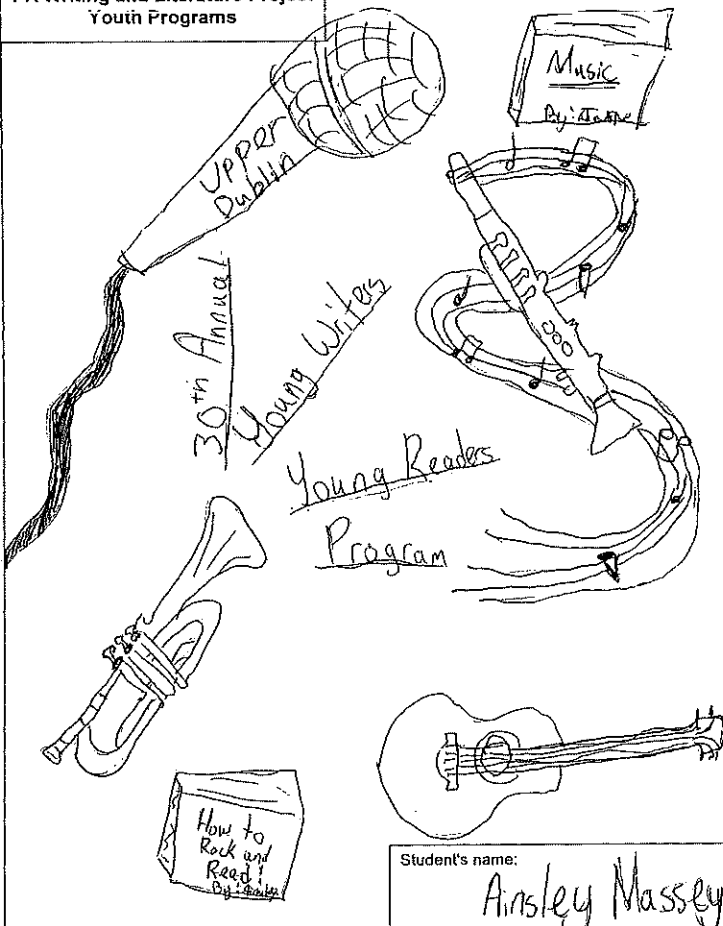 Youth Programs
Upper
Dublin
Music
30th Annual
Young Writers
Young Readers
Program
How to
Rock and
Read!
Student's name:
Ainsley Massey